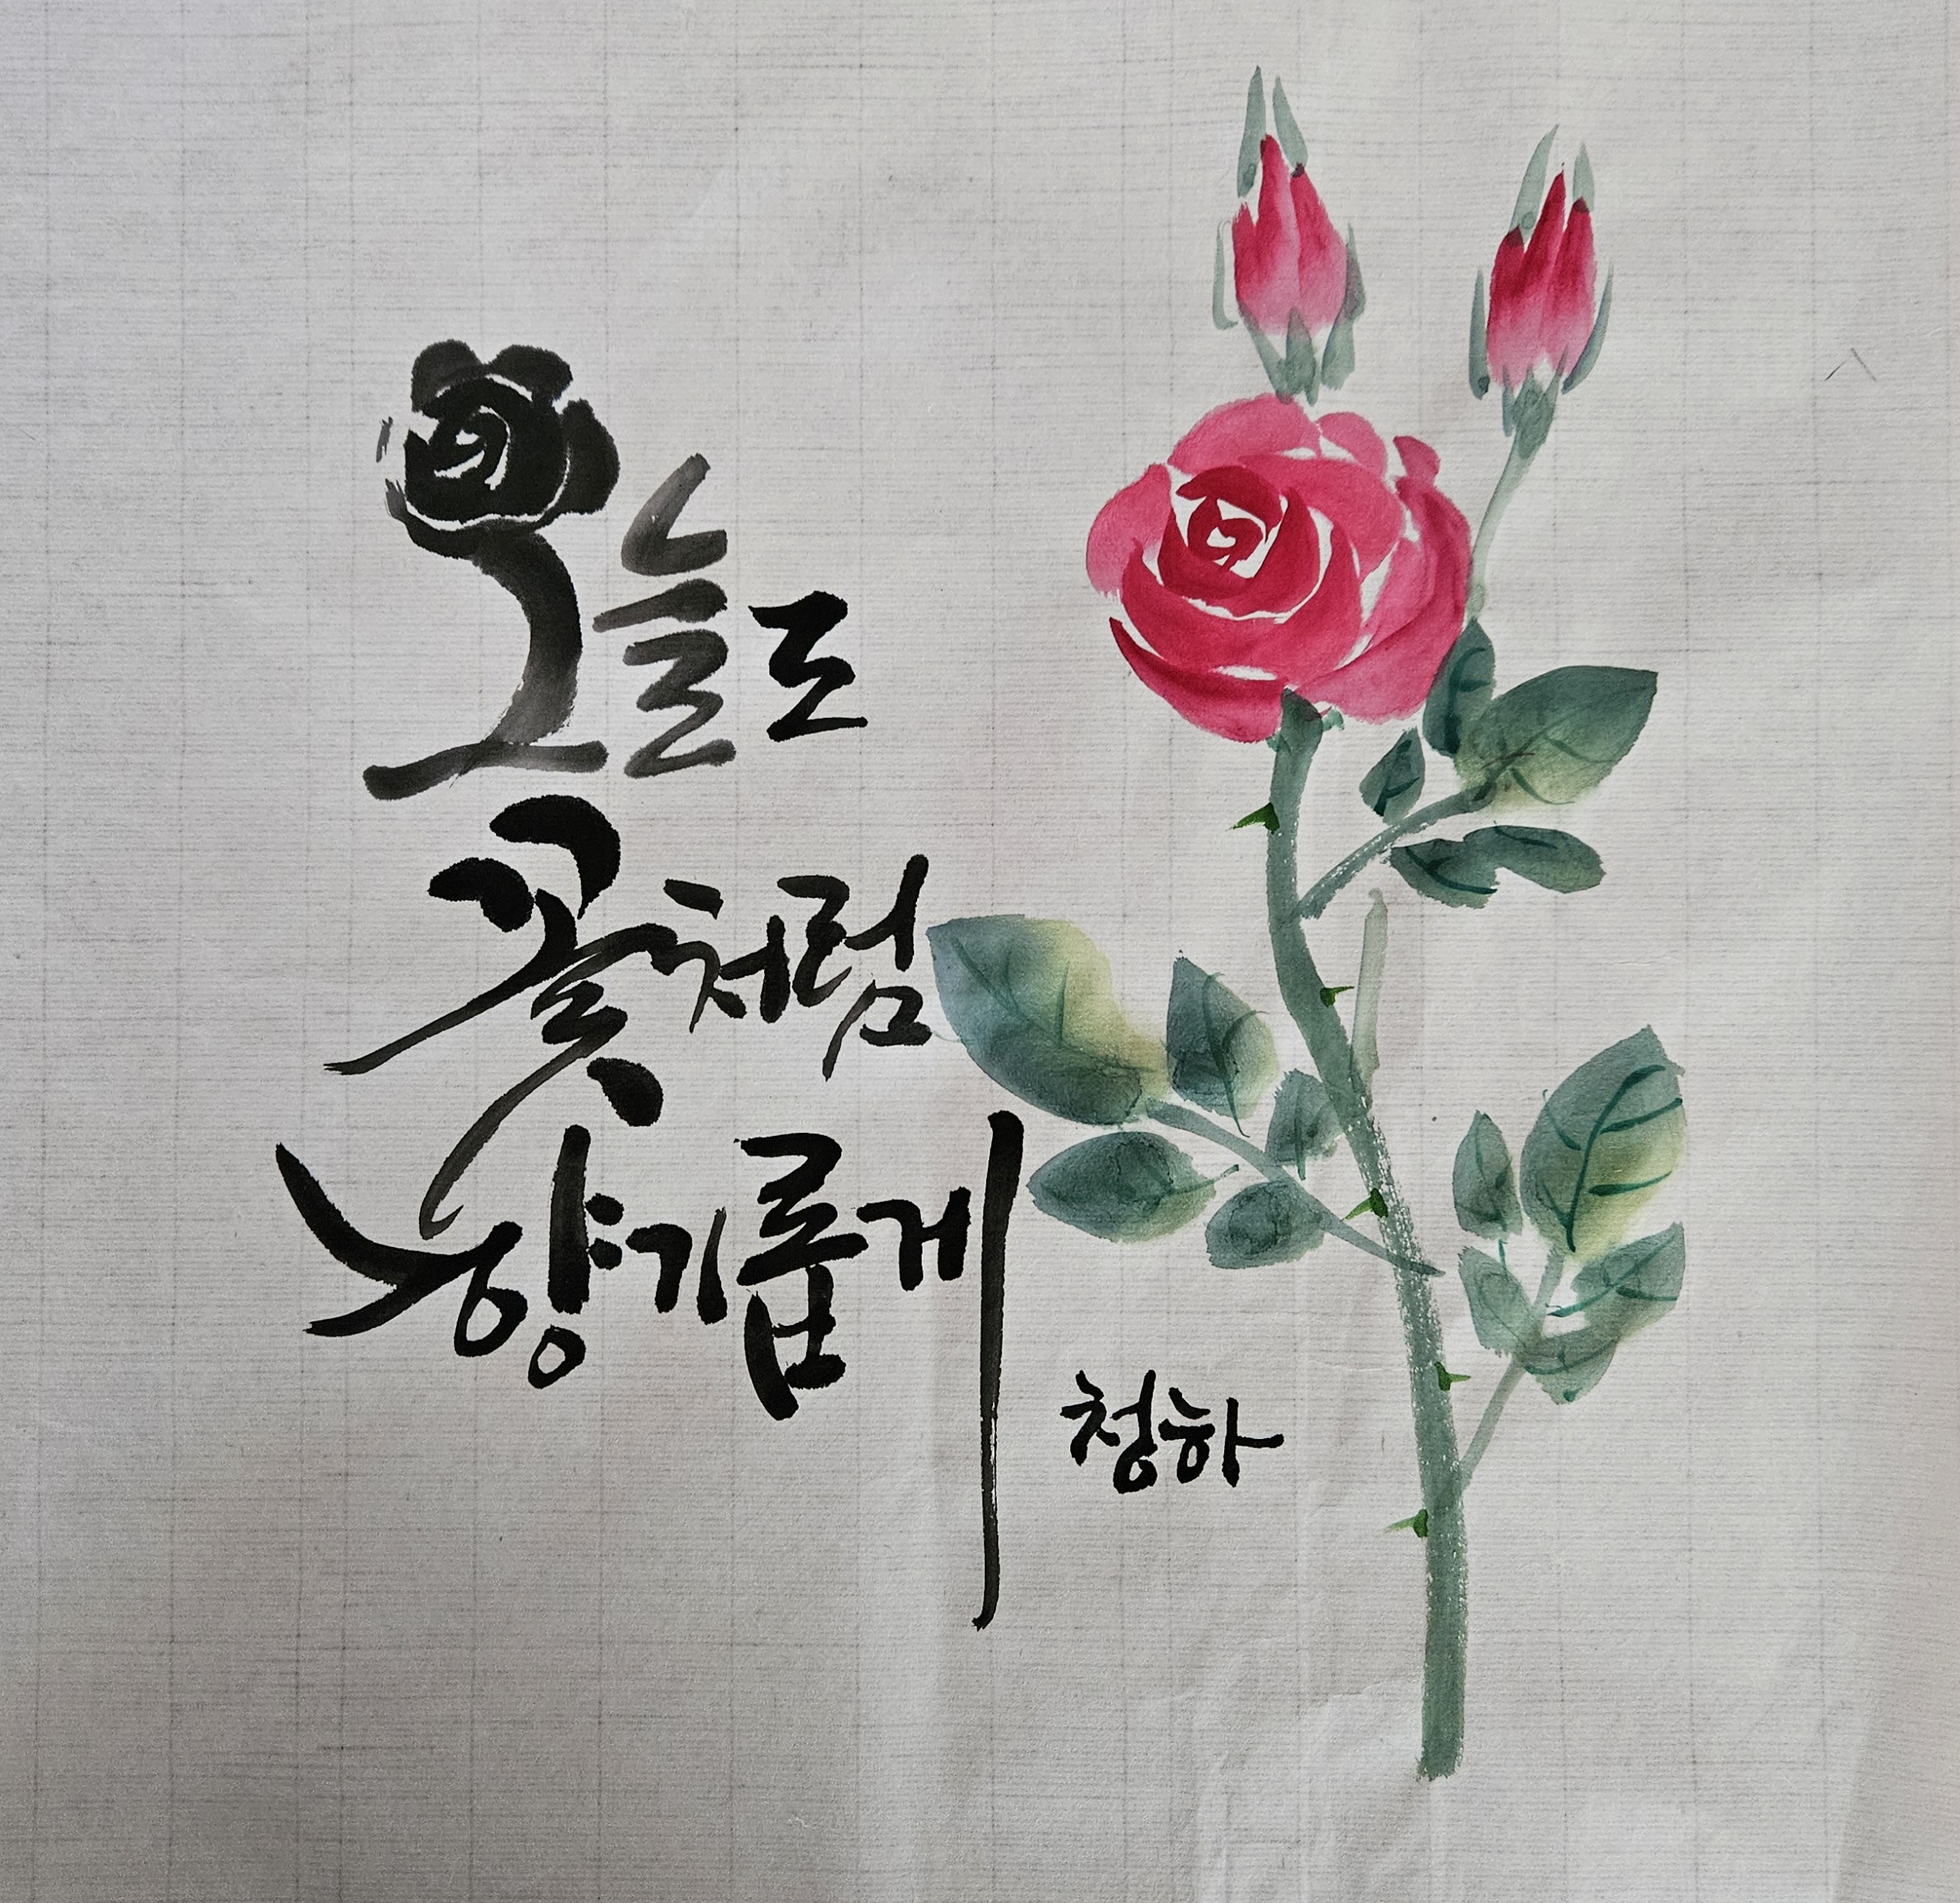 오늘도
꽃처럼
향기롭게
청하